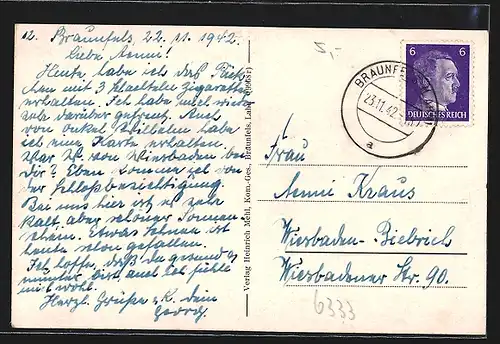 12. Braunfels, 22. 11. 1942.
Liebe Aenni!
Heute habe ich das Päck
chen mit 3 Schachteln Zigaretten
erhalten. Ich habe mich wieder
sehr darüber gefreut. Auch
von Onkel Wilhelm habe
ich eine Karte erhalten.
War W. von Wiesbaden bei
Dir? Eben kommen wir von
der Schloßbesichtigung
Bei uns hier ist es sehr
kalt aber schöner Sonnen-
schein. Etwas Schnee ist
heute schon gefallen.
Ich hoffe, daß du gesund u.
munter bist auch ich fühle
mich wohl.
Herzl. Grüße u. K. Dein
Georg.
Verlag Heinrich Mehl, Kom.-Ges., Braunfels, Lahn
5,-
BRAUNFELS
23.11.42
a
6 6
DEUTSCHES REICH
Frau
Aenni Kraus
Wiesbaden-Biebrich
Wiesbadener Str. 90.
6333